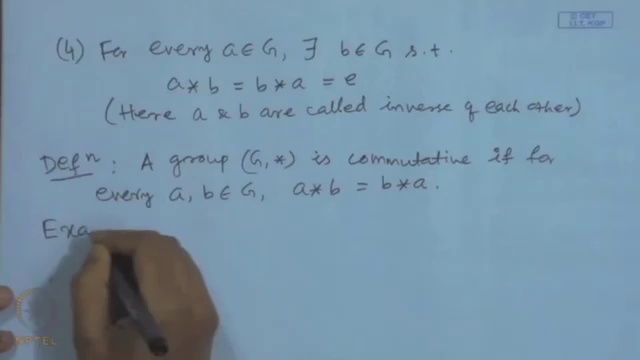 © CET
I.I.T. KGP
(4) For every a ∈ G, ∃ b ∈ G s.t.
a * b = b * a = e
(Here a & b are called inverse of each other)
Defⁿ : A group (G, *) is commutative if for
every a, b ∈ G, a * b = b * a.
Exa
NPTEL